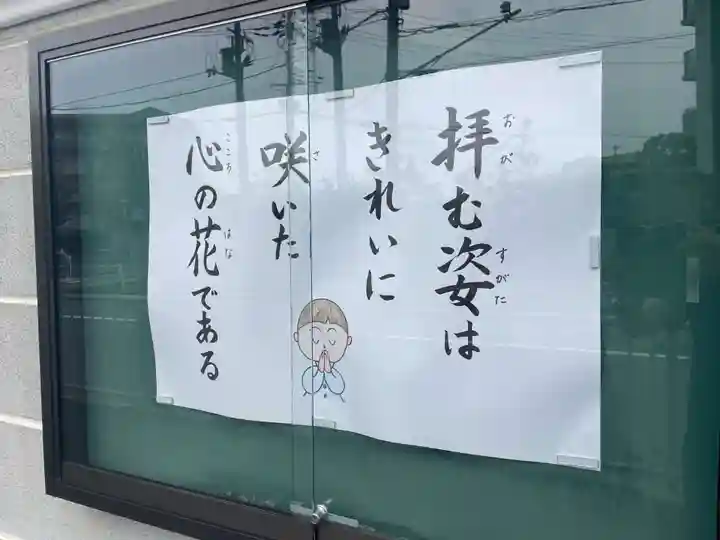 拝む姿は
きれいに
咲いた
心の花である
おが
すがた
さ
こころ
はな